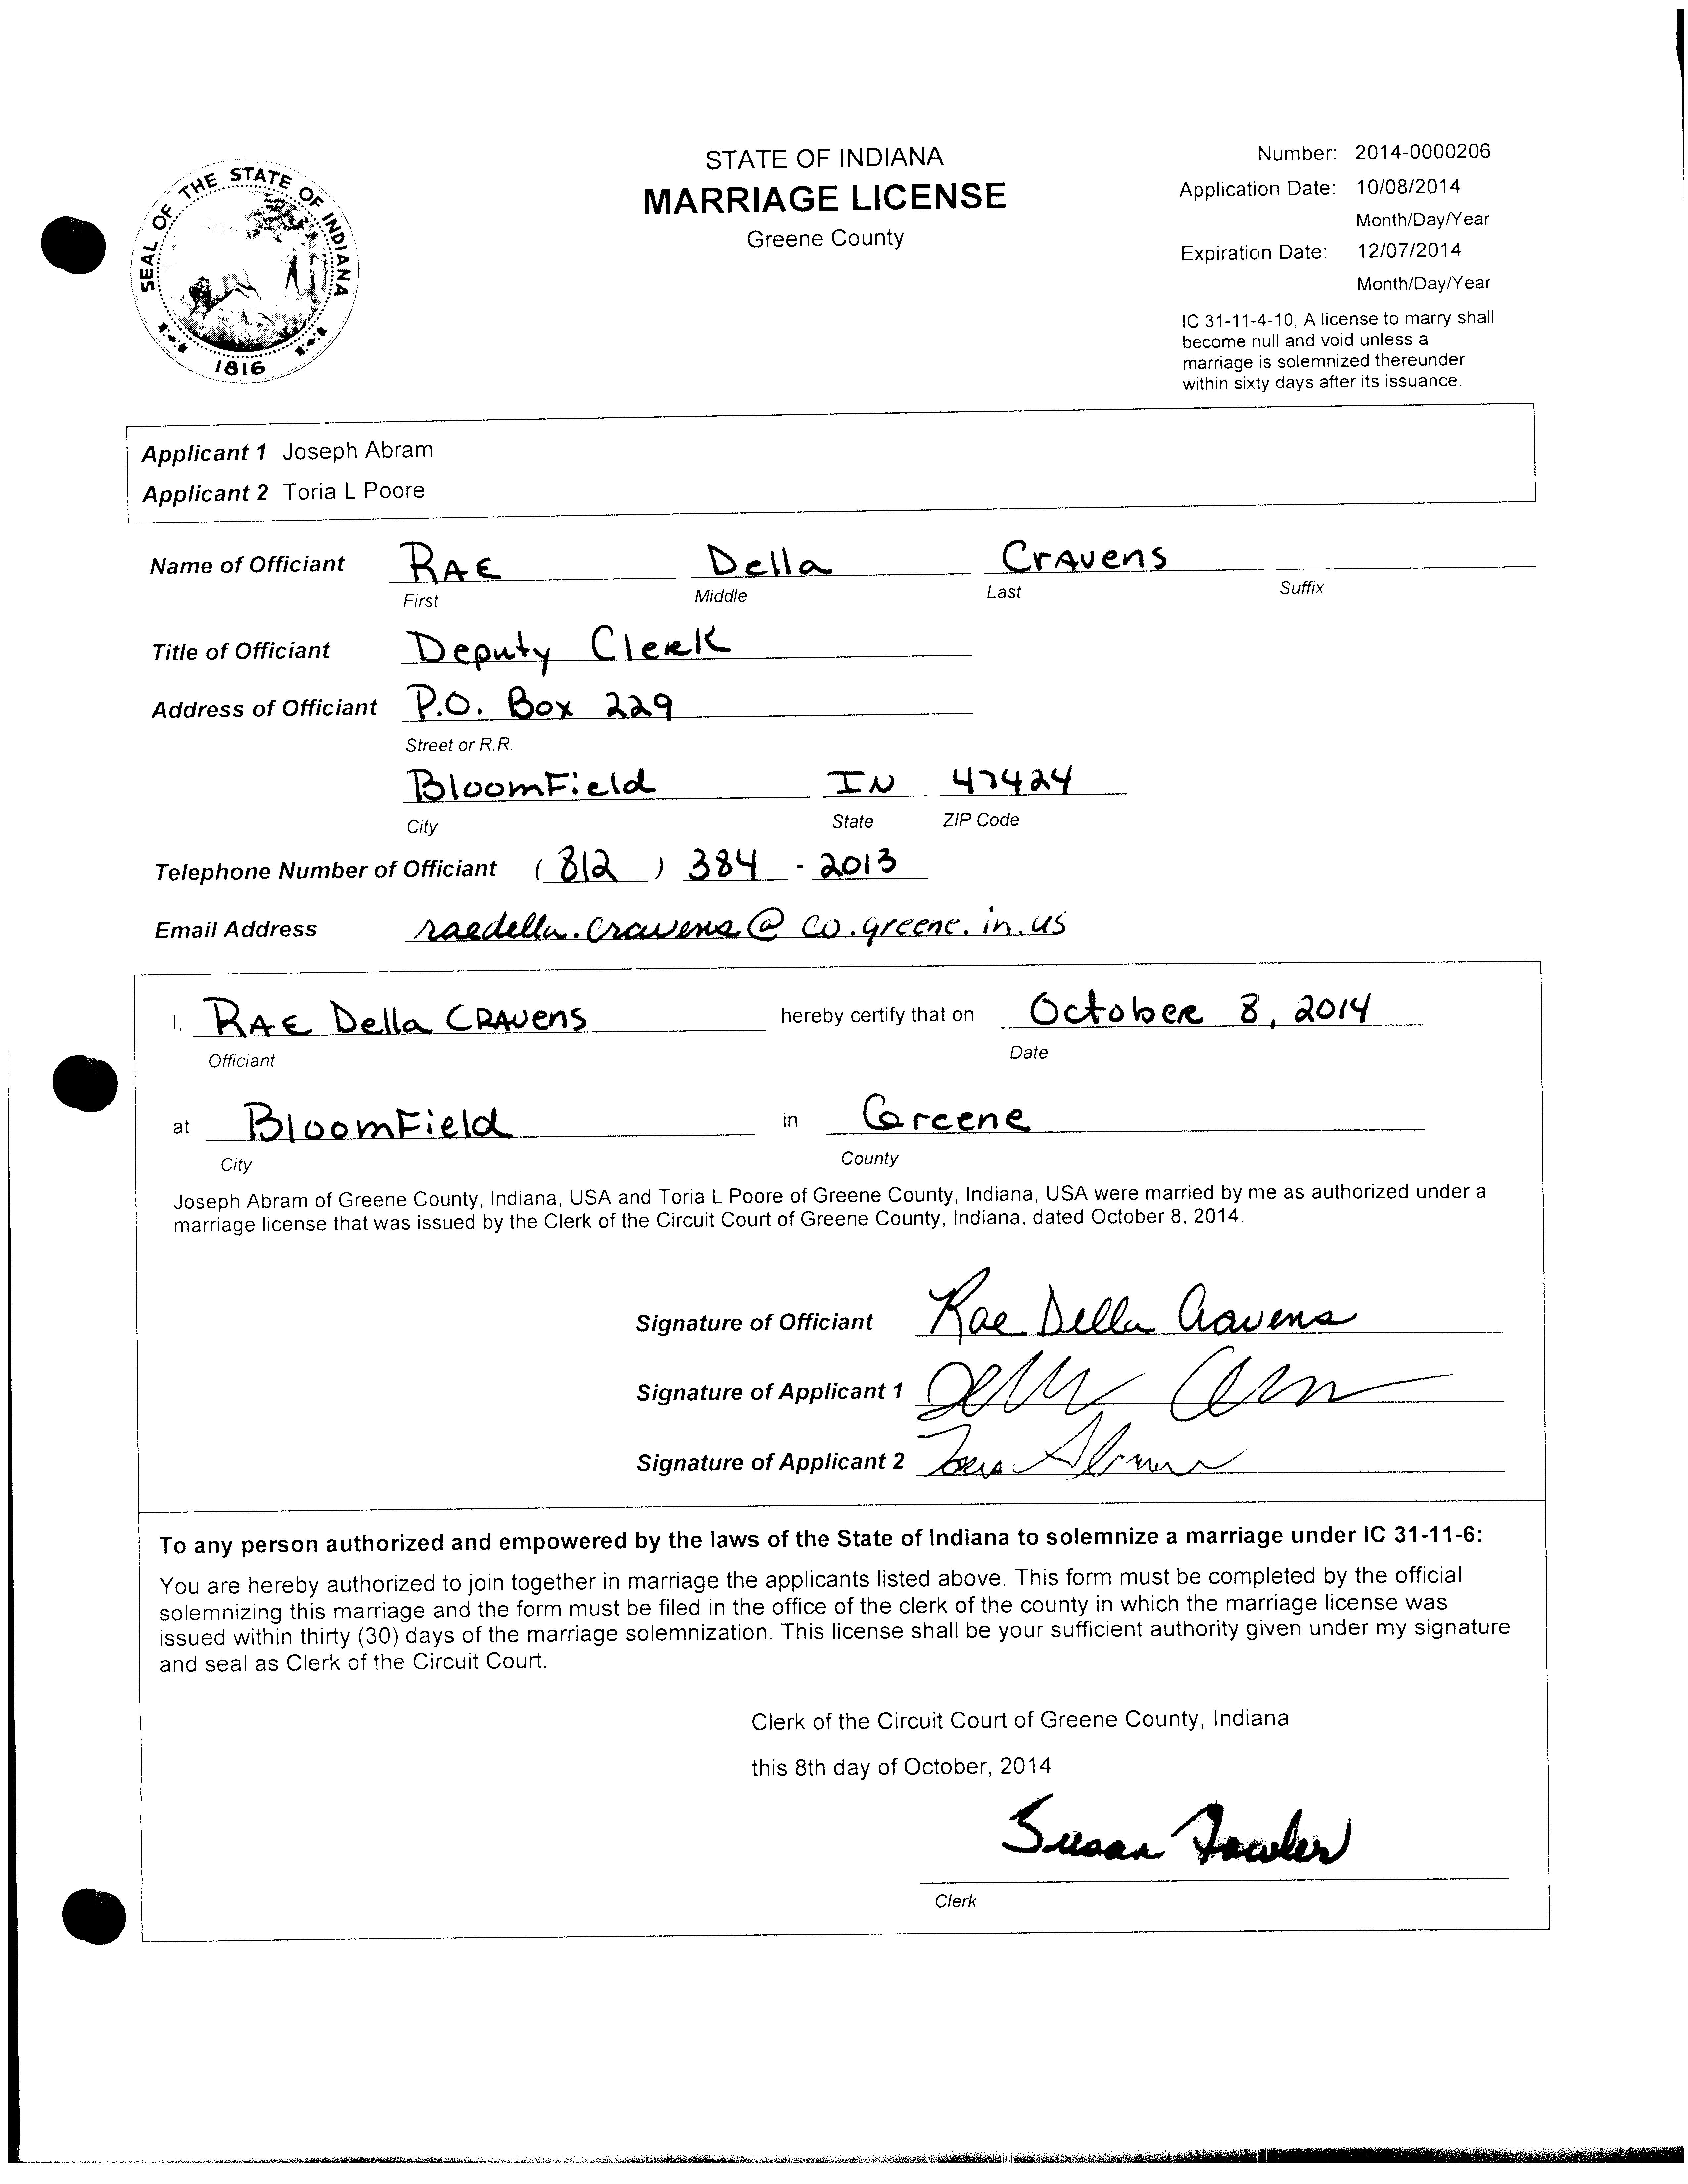 SEAL OF THE STATE OF INDIANA
1816
STATE OF INDIANA
MARRIAGE LICENSE
Greene County
Number: 2014-0000206
Application Date: 10/08/2014
Month/Day/Year
Expiration Date: 12/07/2014
Month/Day/Year
IC 31-11-4-10, A license to marry shall
become null and void unless a
marriage is solemnized thereunder
within sixty days after its issuance.
Applicant 1 Joseph Abram
Applicant 2 Toria L Poore
Name of Officiant RAE Della CrAvens
First Middle Last Suffix
Title of Officiant Deputy Clerk
Address of Officiant P.O. Box 229
Street or R.R.
BloomField IN 47424
City State ZIP Code
Telephone Number of Officiant (812) 384 - 2013
Email Address raedella.cravens@co.greene.in.us
I, RAE Della CRAvens hereby certify that on October 8, 2014
Officiant Date
at BloomField in Greene
City County
Joseph Abram of Greene County, Indiana, USA and Toria L Poore of Greene County, Indiana, USA were married by me as authorized under a
marriage license that was issued by the Clerk of the Circuit Court of Greene County, Indiana, dated October 8, 2014.
Signature of Officiant Rae Della Cravens
Signature of Applicant 1
Signature of Applicant 2
To any person authorized and empowered by the laws of the State of Indiana to solemnize a marriage under IC 31-11-6:
You are hereby authorized to join together in marriage the applicants listed above. This form must be completed by the official
solemnizing this marriage and the form must be filed in the office of the clerk of the county in which the marriage license was
issued within thirty (30) days of the marriage solemnization. This license shall be your sufficient authority given under my signature
and seal as Clerk of the Circuit Court.
Clerk of the Circuit Court of Greene County, Indiana
this 8th day of October, 2014
Susan Fowler
Clerk